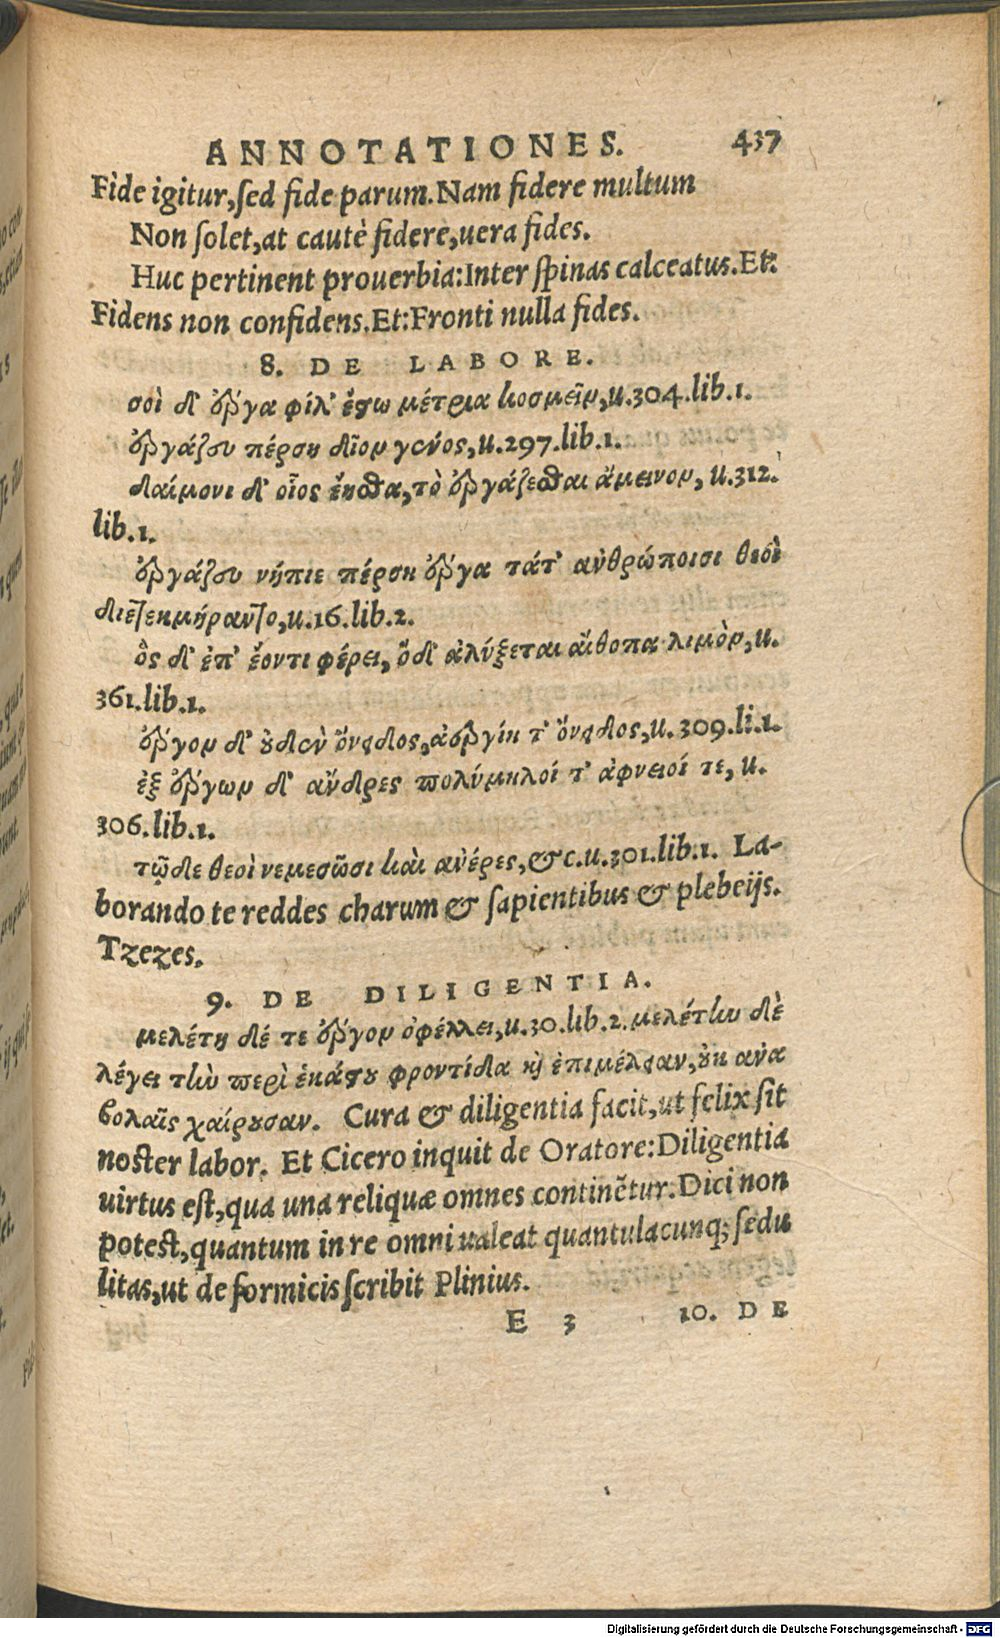 ANNOTATIONES. 437
Fide igitur, sed fide parum. Nam fidere multum
Non solet, at cautè fidere, uera fides.
Huc pertinent prouerbia: Inter spinas calceatus. Et:
Fidens non confidens. Et: Fronti nulla fides.
8. DE LABORE.
σοὶ δ' ἔργα φίλ' ἔστω μέτρια κοσμεῖν, u. 304. lib. 1.
ἐργάζου πέρση δῖον γένος, u. 297. lib. 1.
δαίμονι δ' οἷος ἔησθα, τὸ ἐργάζεσθαι ἄμεινον, u. 312.
lib. 1.
ἐργάζου νήπιε πέρση ἔργα τάτ' ἀνθρώποισι θεοὶ
διετεκμήραντο, u. 16. lib. 2.
ὃς δ' ἐπ' ἐόντι φέρει, ὅδ' ἀλύξεται αἴθοπα λιμὸν, u.
361. lib. 1.
ἔργον δ' οὐδὲν ὄνειδος, ἀεργίη τ' ὄνειδος, u. 309. li. 1.
ἐξ ἔργων δ' ἄνδρες πολύμηλοί τ' ἀφνειοί τε, u.
306. lib. 1.
τῷδε θεοὶ νεμεσῶσι καὶ ἀνέρες, &c. u. 301. lib. 1. La-
borando te reddes charum & sapientibus & plebeijs.
Tzezes.
9. DE DILIGENTIA.
μελέτη δέ τε ἔργον ὀφέλλει, u. 30. lib. 2. μελέτην δὲ
λέγει τὴν περὶ ἑκάστου φροντίδα καὶ ἐπιμέλειαν, οὐκ ἀνα
βολαῖς χαίρουσαν. Cura & diligentia facit, ut felix sit
noster labor. Et Cicero inquit de Oratore: Diligentia
uirtus est, qua una reliquæ omnes continẽtur. Dici non
potest, quantum in re omni ualeat quantulacunq; sedu
litas, ut de formicis scribit Plinius.
E 3 10. DE
Digitalisierung gefördert durch die Deutsche Forschungsgemeinschaft - DFG